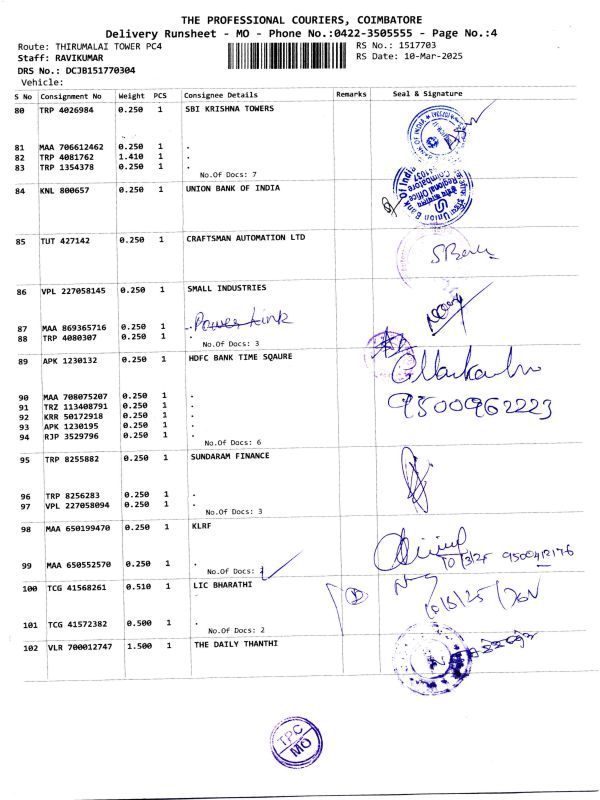 THE PROFESSIONAL COURIERS, COIMBATORE
Delivery Runsheet - MO - Phone No.:0422-3505555 - Page No.:4
Route: THIRUMALAI TOWER PC4
RS No.: 1517703
Staff: RAVIKUMAR
RS Date: 10-Mar-2025
DRS No.: DCJB151770304
Vehicle:
S No Consignment No Weight PCS Consignee Details Remarks Seal & Signature
80 TRP 4026984 0.250 1 SBI KRISHNA TOWERS
81 MAA 706612462 0.250 1 .
82 TRP 4081762 1.410 1 .
83 TRP 1354378 0.250 1 .
No.Of Docs: 7
84 KNL 800657 0.250 1 UNION BANK OF INDIA
Union Bank Of India
Regional Office
Coimbatore
85 TUT 427142 0.250 1 CRAFTSMAN AUTOMATION LTD
86 VPL 227058145 0.250 1 SMALL INDUSTRIES
Power Link
87 MAA 869365716 0.250 1 .
88 TRP 4080307 0.250 1 .
No.Of Docs: 3
89 APK 1230132 0.250 1 HDFC BANK TIME SQAURE
90 MAA 708075207 0.250 1 .
91 TRZ 113408791 0.250 1 .
92 KRR 50172918 0.250 1 .
93 APK 1230195 0.250 1 .
94 RJP 3529796 0.250 1 .
No.Of Docs: 6
9500962223
95 TRP 8255882 0.250 1 SUNDARAM FINANCE
96 TRP 8256283 0.250 1 .
97 VPL 227058094 0.250 1 .
No.Of Docs: 3
98 MAA 650199470 0.250 1 KLRF
10/3/25 9500412176
99 MAA 650552570 0.250 1 .
No.Of Docs: 2
100 TCG 41568261 0.510 1 LIC BHARATHI
101 TCG 41572382 0.500 1 .
No.Of Docs: 2
102 VLR 700012747 1.500 1 THE DAILY THANTHI
TPC
MO